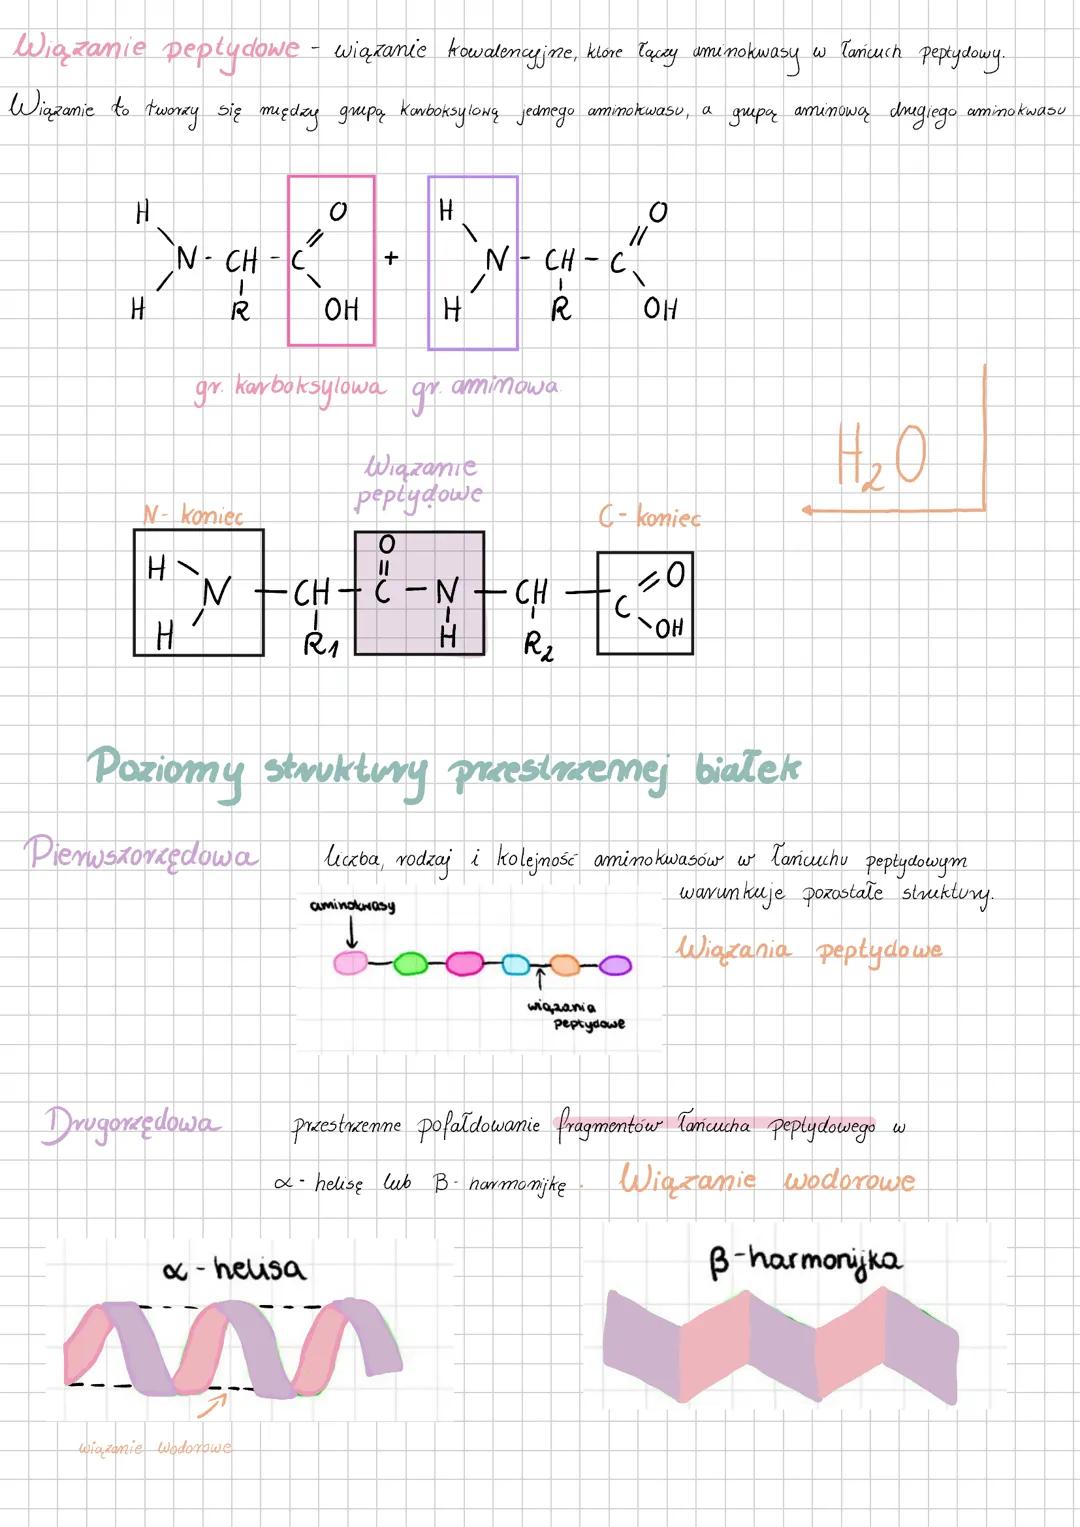 Wiązanie peptydowe - wiązanie kowalencyjne, które łączy aminokwasy w łańcuch peptydowy.
Wiązanie to tworzy się między grupą karboksylową jednego aminokwasu, a grupą aminową drugiego aminokwasu
H O H O
N - CH - C + N - CH - C
H R OH H R OH
gr. karboksylowa gr. aminowa
H₂O
Wiązanie
peptydowe
N - koniec C - koniec
H O O
N - CH - C - N - CH - C
H R1 H R2 OH
Poziomy struktury przestrzennej białek
Pierwszorzędowa liczba, rodzaj i kolejność aminokwasów w łańcuchu peptydowym
warunkuje pozostałe struktury.
aminokwasy
Wiązania peptydowe
wiązania
peptydowe
Drugorzędowa przestrzenne pofałdowanie fragmentów łańcucha peptydowego w
α - helisę lub β - harmonijkę. Wiązanie wodorowe
α - helisa β-harmonijka
wiązanie wodorowe